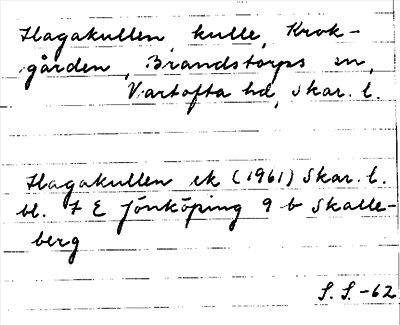 Hagakullen, kulle, Krok-
gården, Brandstorps sn,
Vartofta hd, Skar. l.
Hagakullen ek (1961) Skar. l.
bl. 7 E Jönköping 9 b Skalle-
berg
S. S. -62